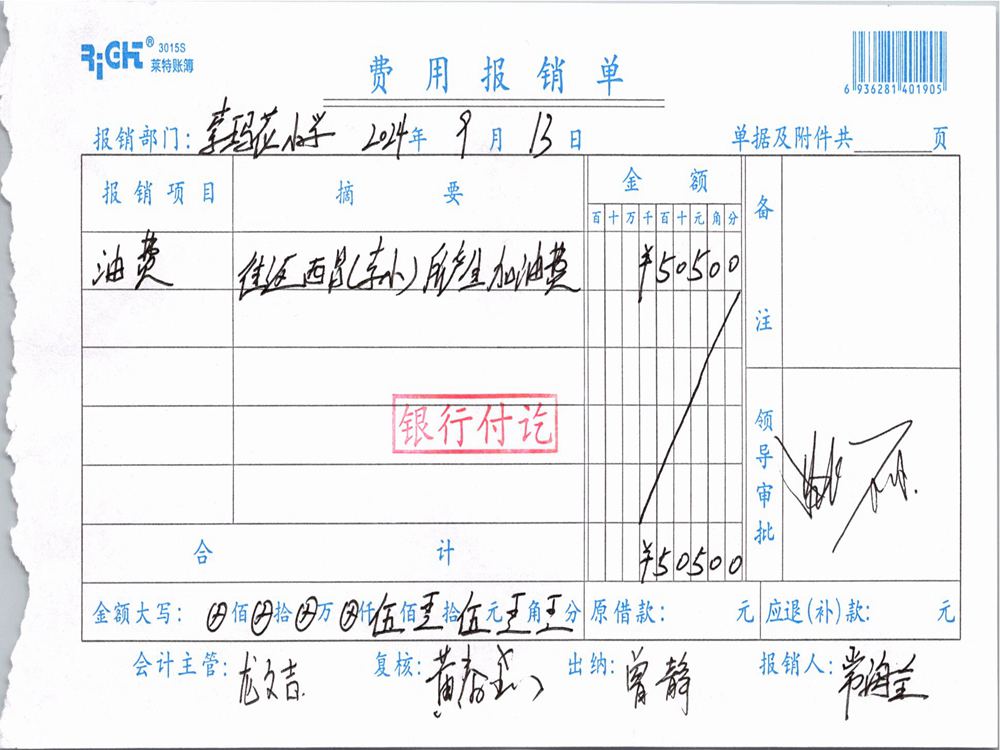 RiGHT® 3015S
莱特账簿
费用报销单
6 936281 401905
报销部门: 李玛花小学 2024年 9月 13日 单据及附件共 页
报销项目 摘要 金额 备注
百 十 万 千 百 十 元 角 分
油费 往返西昌(李小)所产生加油费 ¥50500
银行付讫
领导审批
合计 ¥50500
金额大写: ⊗佰⊗拾⊗万⊗仟伍佰零拾伍元零角零分 原借款: 元 应退(补)款: 元
会计主管: 龙文吉 复核: 黄春 出纳: 曾静 报销人: 常海兰